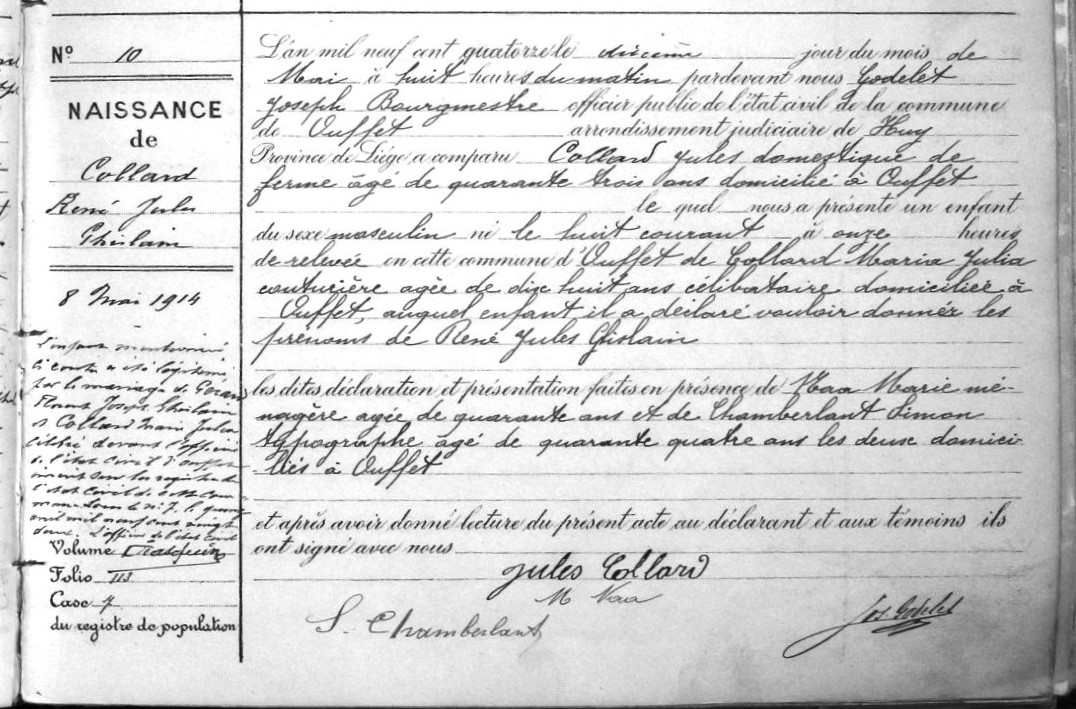 N° 10
NAISSANCE
de
Collard
René Jules
Ghislain
8 Mai 1914
L'enfant mentionné
ci contre a été légitimé
par le mariage de
Joseph Ghislain
et Collard Marie Julia
célébré devant l'officier
de l'état civil d'Ouffet
inscrit sur les registres de
l'état civil de cette com-
mune sous le n° 7 le quinze
avril mil neuf cent vingt
L'officier de l'état civil
Volume
Folio 113
Case 7
du registre de population
L'an mil neuf cent quatorze le dixième jour du mois de
Mai à huit heures du matin pardevant nous Godelet
Joseph Bourgmestre officier public de l'état civil de la commune
de Ouffet arrondissement judiciaire de Huy
Province de Liége a comparu Collard Jules domestique de
ferme âgé de quarante trois ans domicilié à Ouffet
le quel nous a présenté un enfant
du sexe masculin né le huit courant à onze heures
de relevée en cette commune d'Ouffet de Collard Maria Julia
couturière agée de dix huit ans célibataire domiciliée à
Ouffet, auquel enfant il a déclaré vouloir donnér les
prénoms de René Jules Ghislain
les dites déclaration et présentation faites en présence de Naa Marie mé-
nagère agée de quarante ans et de Chamberlant Simon
typographe âgé de quarante quatre ans les deux domici-
liés à Ouffet
et après avoir donné lecture du présent acte au déclarant et aux témoins ils
ont signé avec nous
Jules Collard
M Naa
S. Chamberlant
Jos. Godelet